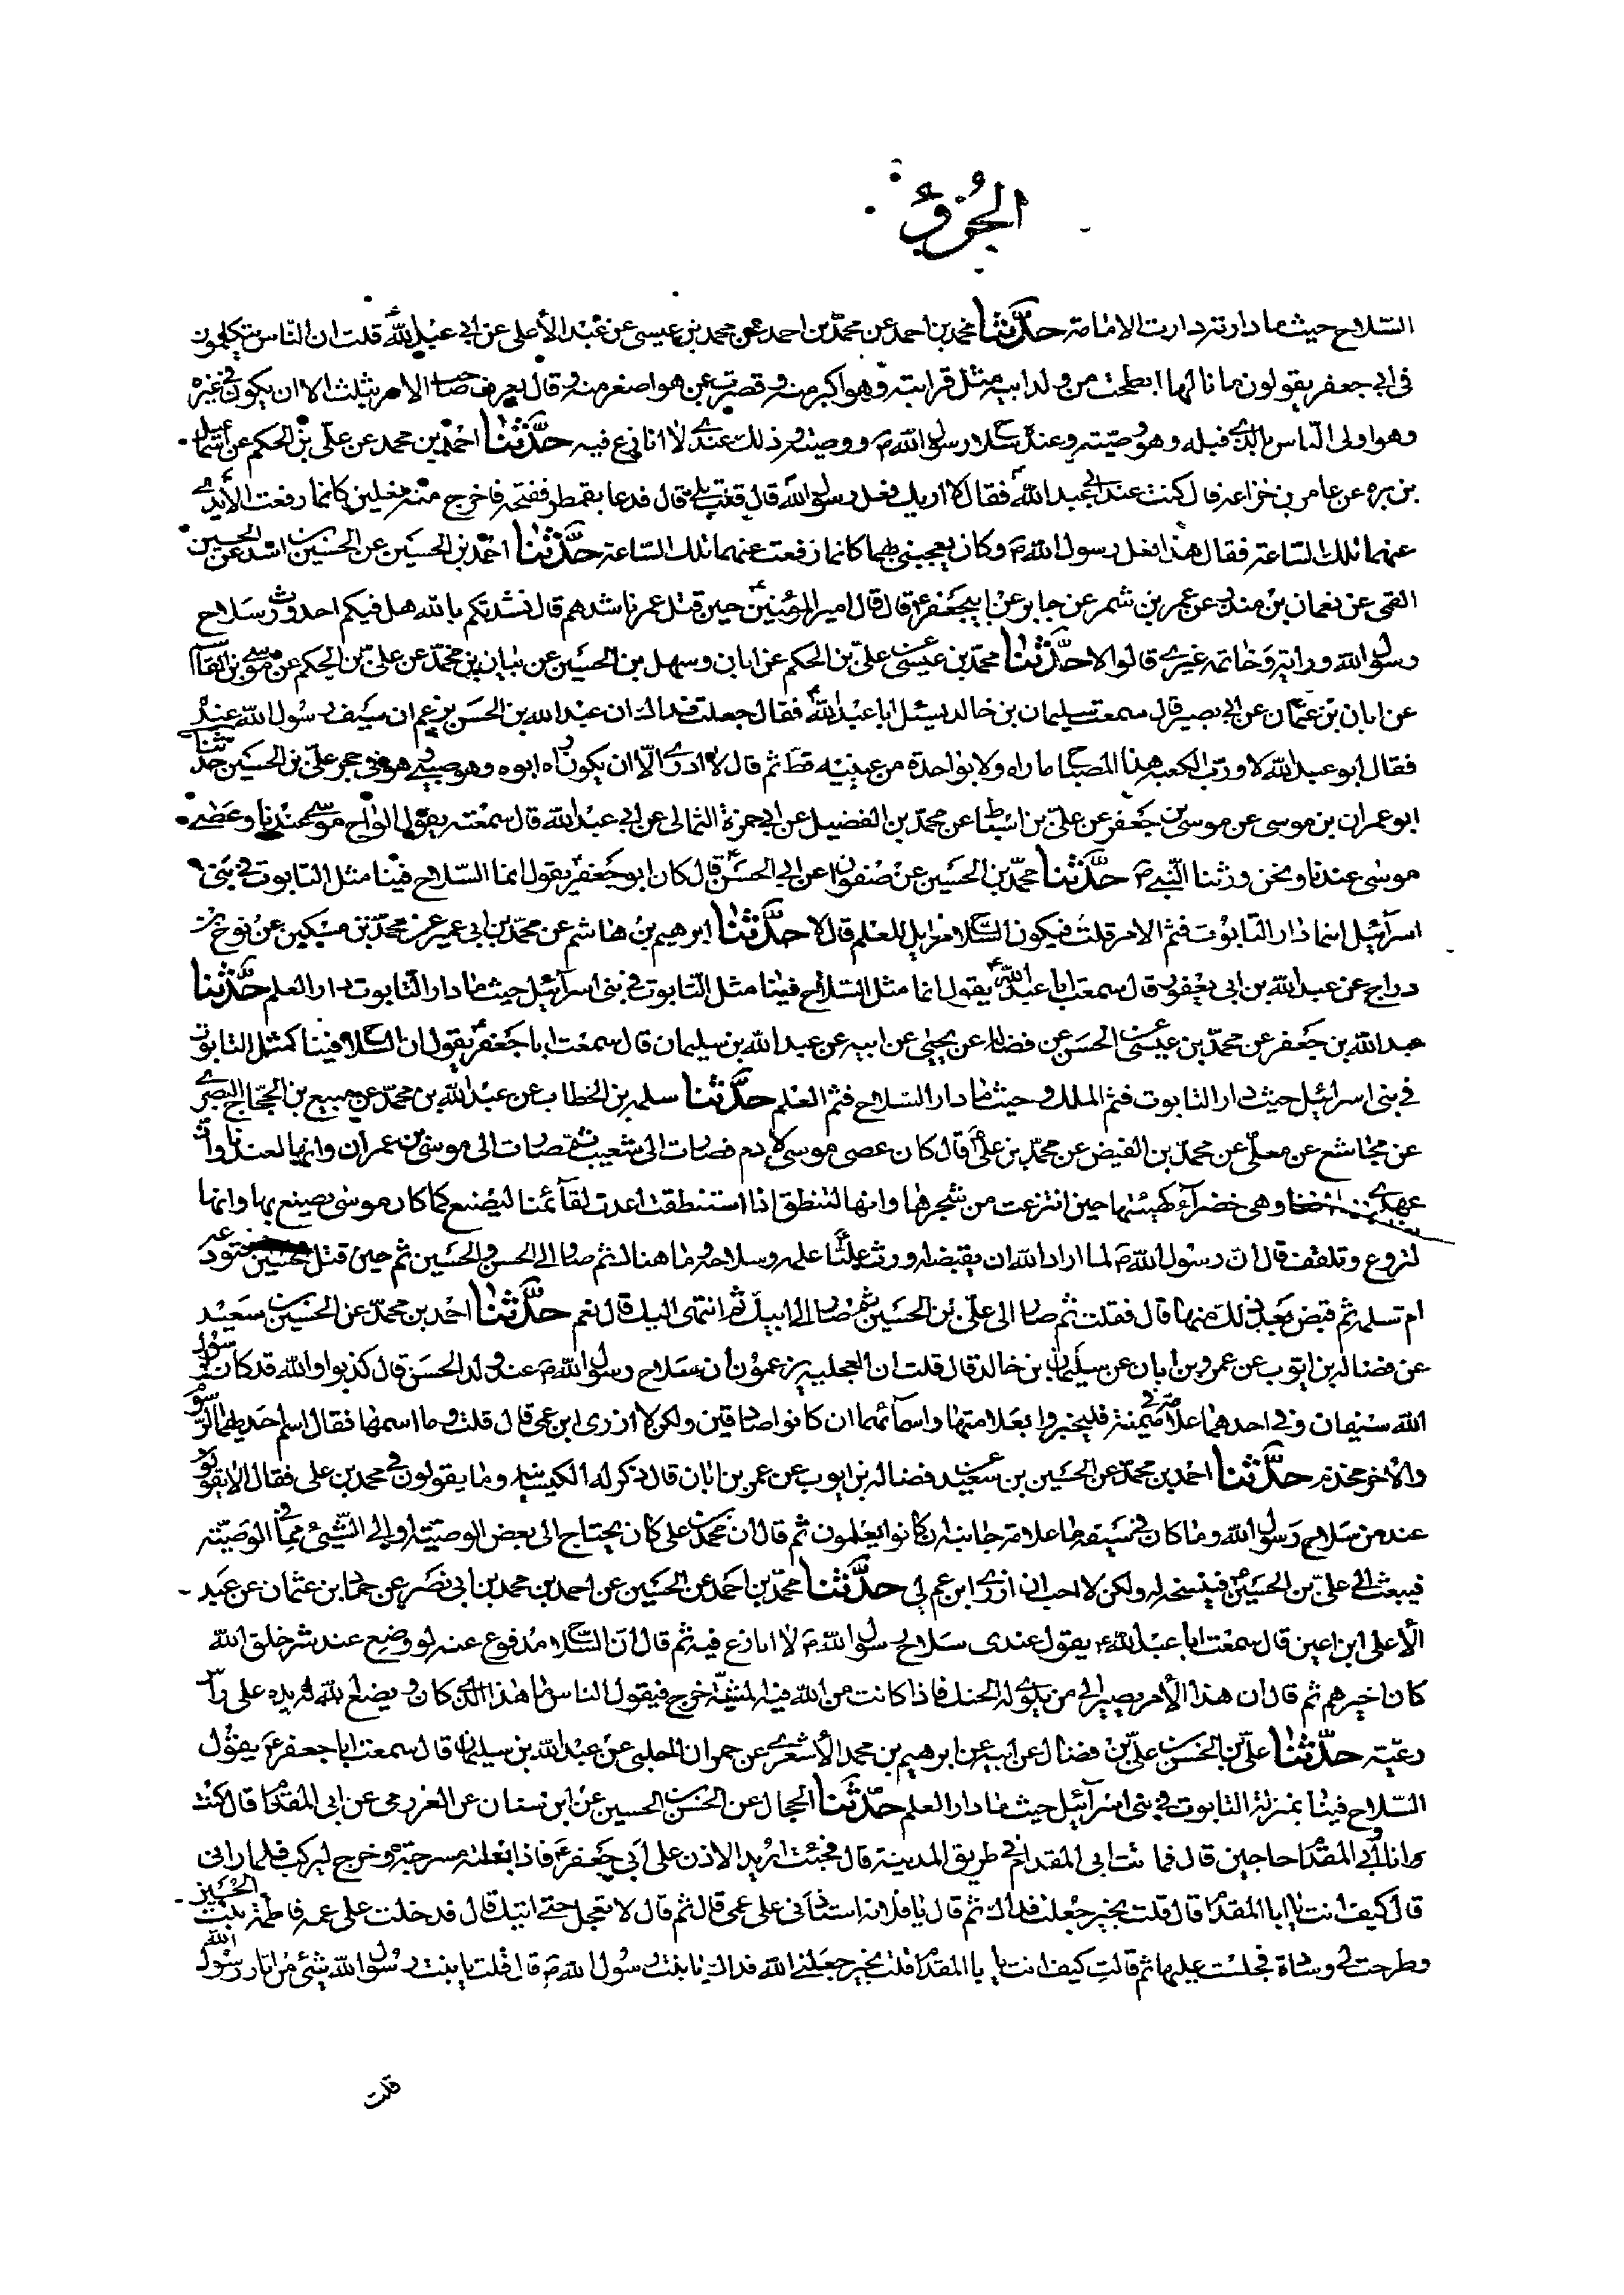 الجزؤ
السّلاح حيث ما دارته دارت الامامة حدّثنا محمد بن احمد عن محمّد بن احمد عن محمد بن عيسى عن عبد الأعلى عن ابي عبد الله ع قلت ان النّاس يتكلمون
في ابي جعفر يقولون ما نالها ابطحت من ولد ابيه مثل قرابته وهو اكبر منه وقصرت عن هو اصغر منه وقال يعرف صاحب الامر بثلث الا ان يكون في غيره
وهو اولى النّاس بالذي قبله وهو وصيّته وعنده سلاح رسول الله ص ووصيته وذلك عندي لا انازع فيه حدّثنا احمد بن محمد عن علّي بن الحكم عن اسماعيل
بن بره عن عامر بن خزاعه قال كنت عند ابي عبد الله ع فقال الا اريك نعل رسول الله قال قلت بلى قال فدعا بقمطر ففتحه فاخرج منه نعلين كانما رفعت الأيدي
عنهما تلك السّاعة فقال هذا نعل رسول الله ص وكان يعجبني بهما كانما رفعت عنهما تلك السّاعة حدّثنا احمد بن الحسين عن الحسين بن اسد عن الحسين
القمى عن نعمان بن منذر عن عمر بن شمر عن جابر عن ابي جعفر ع قال قال امير المؤمنين ع حين قتل عمر ناشدهم قال نشدتكم بالله هل فيكم احد ورث سلاح
رسول الله ورايته وخاتمه غيري قالوا لا حدّثنا محمّد بن عيسى عن علىّ بن الحكم عن ابان وسهل بن الحسين عن بنان بن محمّد عن علىّ بن الحكم عن موسى بن القاسم
عن ابان بن عثمان عن ابي بصير قال سمعت سليمان بن خالد يسئل ابا عبد الله ع فقال جعلت فداك ان عبد الله بن الحسن يزعم ان سيف رسول الله عنده
فقال ابو عبد الله لا وربّ الكعبه هذا المصباح ما راه ولا بواحدة من عينيه قط ثم قال لا ادري الّا ان يكون راه ابوه وهو صبيّ وهو في حجر علىّ بن الحسين حدّثنا
ابو عمران بن موسى عن موسى بن جعفر عن علىّ بن اسباط عن محمّد بن الفضيل عن ابي حمزة الثمالى عن ابي عبد الله قال سمعته يقول الواح موسى عندنا وعصى
موسى عندنا ونحن ورثنا النّبي ص حدّثنا محمّد بن الحسين عن صفوان عن ابي الحسن ع قال كان ابو جعفر يقول انما السّلاح فينا مثل التابوت في بنى
اسرآئيل اينما دار التابوت فثم الامر قلت فيكون السّلاح مزايل للعلم قال لا حدّثنا ابرهيم بن هاشم عن محمّد بن ابي عمير عن محمّد بن مسكين عن نوح بن
دراج عن عبد الله بن ابي يعفور قال سمعت ابا عبد الله ع يقول انما مثل السّلاح فينا مثل التّابوت في بنى اسرآئيل حيث ما دار التّابوت دار العلم حدّثنا
عبد الله بن جعفر عن محمّد بن عيسى عن الحسن عن فضاله عن يحيى عن ابيه عن عبد الله بن سليمان قال سمعت ابا جعفر ع يقول ان السّلاح فينا كمثل التابوت
في بنى اسرائيل حيث دار التابوت فثم الملك وحيث ما دار السّلاح فثم العلم حدّثنا سلمه بن الخطاب عن عبد الله بن محمّد عن منيع بن الحجّاج البصري
عن مجاشع عن معلّى عن محمّد بن الفيض عن محمّد بن على ع قال كان عصى موسى لادم فصارت الى شعيب ثم صارت الى موسى بن عمران وانها لعندنا وانّ
عهدي بها وهى خضرآء كهيئتها حين انتزعت من شجرها وانها لتنطق اذا استنطقت اعدت لقآئمنا ليصنع كما كان موسى يصنع بها وانها
لتروع وتلقف قال انّ رسول الله ص لما اراد الله ان يقبضه اورث عليّا علمه وسلاحه وما هناك ثم صار الى الحسن والحسين ثم حين قتل الحسين استودعه
ام سلمه ثم قبض بعد ذلك منها قال فقلت ثم صار الى علىّ بن الحسين ثم صار الى ابيك ثم انتهى اليك قال نعم حدّثنا احمد بن محمّد عن الحسين بن سعيد
عن فضاله بن ايّوب عن عمرو بن ابان عن سليمان بن خالد قال قلت ان العجلية يزعمون ان سلاح رسول الله ص عند ولد الحسن قال كذبوا والله قد كان لرسول
الله سيفان وفي احدهما علامة في ميمنة فليخبروا بعلامتها واسمآئهما ان كانوا صادقين ولكن لا ازرى ابن عمى قال قلت وما اسمها فقال اسم احديهما الرّسوم
والاخر مخذم حدّثنا احمد بن محمّد عن الحسين بن سعيد عن فضاله بن ايوب عن عمر بن ابان قال ذكر له الكيسانيه وما يقولون في محمد بن على فقال الا يقولون
عند من سلاح رسول الله وما كان في سيفه من علامة جانبه ان كانوا يعلمون ثم قال ان محمّد بن على كان يحتاج الى بعض الوصيّة او الى الشّيئ ممّا في الوصيّته
فيبعث الى علىّ بن الحسين ع فينسخه له ولكن لا احب ان ازرى ابن عم لي حدّثنا محمّد بن احمد عن الحسين عن احمد بن محمد بن ابي نصر عن حماد بن عثمان عن عبد
الأعلى ابن اعين قال سمعت ابا عبد الله ع يقول عندى سلاح رسول الله ص لا انازع فيه ثم قال انّ السّلاح مدفوع عنه لو وضع عند شر خلق الله
كان خيرهم ثم قال ان هذا الأمر يصير الى من يلوى له الحنك فاذا كانت من الله فيه المشيّة خرج فيقول الناس ما هذا الذي كان ويضع الله له يده على راس
رعيّته حدّثنا علىّ بن الحسن بن علىّ بن فضال عن ابيه عن ابرهيم بن محمد الأشعري عن حمران الحلبى عن عبد الله بن سليمان قال سمعت ابا جعفر ع يقول
السّلاح فينا بمنزلة التابوت في بنى اسرآئيل حيث ما دار العلم حدّثنا الحجال عن الحسن بن الحسين عن ابن سنان عن العرزمى عن ابي المقدام قال كنت
وانا وابي المقدام حاجين قال فماتت ام ابي المقدام في طريق المدينة قال فجئت اريد الاذن على ابي جعفر ع فاذا بغلته مسرجة وخرج ليركب فلما رانى
قال كيف انت يا ابا المقدام قال قلت بخير جعلت فداك ثم قال يا فلانه استاذني على عمى قال ثم قال لا تعجل حتى اتيك قال فدخلت على عمه فاطمة بنت الحسين
وطرحت لي وسادة فجلست عليها ثم قالت كيف انت يا ابا المقدام قلت بخير جعلني الله فداك يا بنت رسول الله ص قال قلت يا بنت رسول الله شيئ من اثار رسول الله
قلت